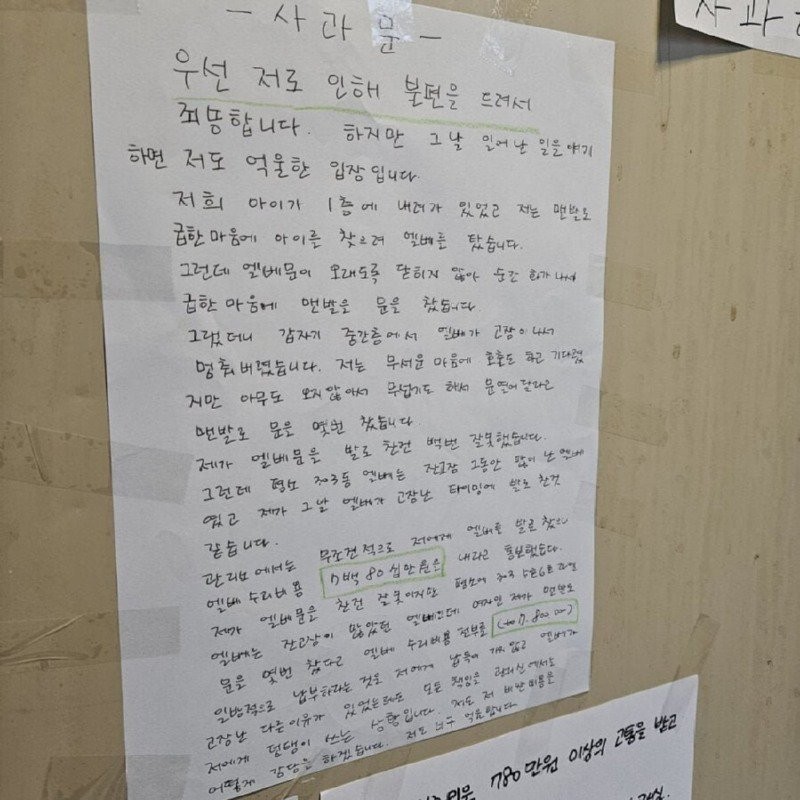 - 사 과 문 -
우선 저로 인해 불편을 드려서
죄송합니다. 하지만 그날 일어난 일을 얘기
하면 저도 억울한 입장입니다.
저희 아이가 1층에 내려가 있었고 저는 맨발로
급한 마음에 아이를 찾으러 엘베를 탔습니다.
그런데 엘베문이 오래도록 닫히지 않아 순간 화가 나서
급한 마음에 맨발로 문을 찼습니다
그랬더니 갑자기 중간층에서 엘베가 고장이 나서
멈춰 버렸습니다. 저는 무서운 마음에 호출도 하고 기다렸
지만 아무도 오지 않아서 무섭기도 해서 문열어 달라고
맨발로 문을 몇번 찼습니다.
제가 엘베문을 발로 찬건 백번 잘못했습니다.
그런데 평소 엘베는 잔고장 그동안 많이 난 엘베
였고 제가 그날 엘베가 고장난 타이밍에 발로 찬것
같습니다.
관리소에서는 무조건적으로 저에게 엘베를 발로 찼으니
엘베 수리비용 7백80십만원을 내라고 통보했습니다.
제가 엘베문을 찬건 잘못이지만 평소에
엘베는 잔고장이 많았던 엘베인데 여자인 제가 맨발로
문을 몇번 찼다고 엘베 수리비용 전부를
일방적으로 납부하라는 것은 저에게 납득이 가지 않고 엘베가
고장난 다른이유가 있었는데도 모든 책임을 관리실에서도
저에게 덤탱이 쓰는 상황입니다. 저도 저 비싼 비용을
어떻게 감당을 하겠습니다. 저도 너무 억울합니다.
사과
780만원 이상의 고통을 받고